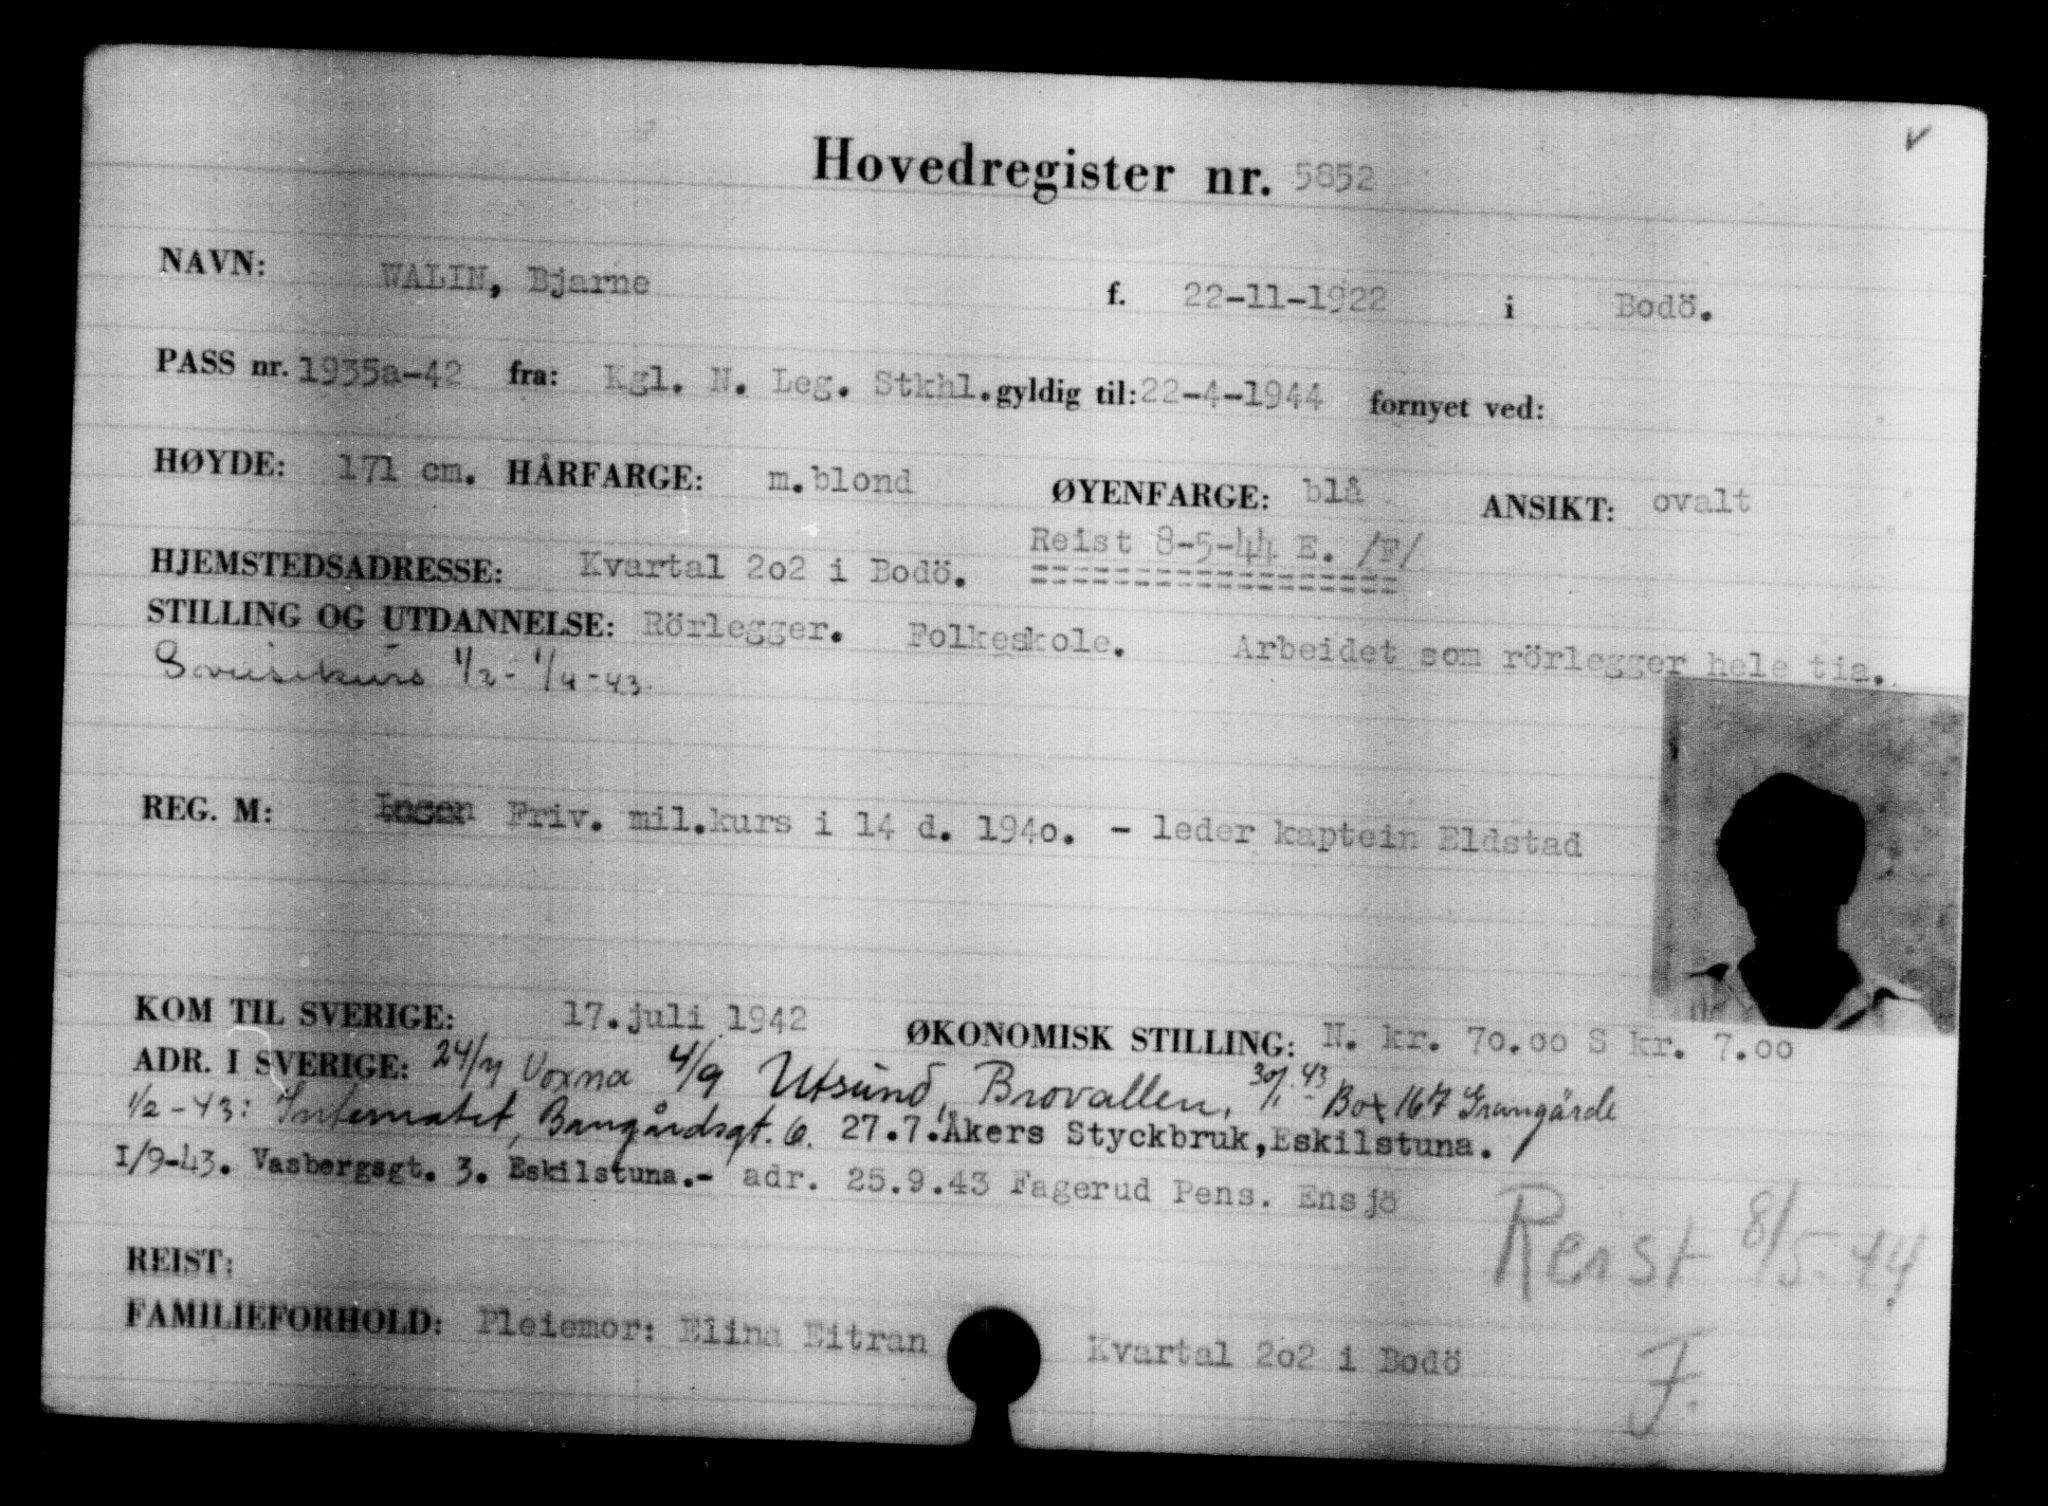 Hovedregister nr. 5852
NAVN: WALIN, Bjarne f. 22-11-1922 i Bodö.
PASS nr. 1935a-42 fra: Kgl. N. Leg. Stkhl. gyldig til: 22-4-1944 fornyet ved:
HØYDE: 171 cm. HÅRFARGE: m.blond ØYENFARGE: blå ANSIKT: ovalt
Reist 8-5-44 E. /F/
HJEMSTEDSADRESSE: Kvartal 2o2 i Bodö.
STILLING OG UTDANNELSE: Rörlegger. Folkeskole. Arbeidet som rörlegger hele tia.
Sveisekurs 1/2 - 1/4 - 43.
REG. M: Ingen Friv. mil.kurs i 14 d. 194o. - leder kaptein Eldstad
KOM TIL SVERIGE: 17.juli 1942 ØKONOMISK STILLING: N. kr. 7o.oo S kr. 7.oo
ADR. I SVERIGE: 24/7 Voxna 4/9 Utsund, Brovallen, 30/1-43 Box 167 Grangärde
1/2-43: Internatet, Bangårdsgt. 6. 27.7. Åkers Styckbruk, Eskilstuna.
I/9-43. Vasbergsgt. 3. Eskilstuna.- adr. 25.9.43 Fagerud Pens. Ensjö
Reist 8/5-44
REIST:
FAMILIEFORHOLD: Pleiemor: Elina Eitran Kvartal 2o2 i Bodö
F.